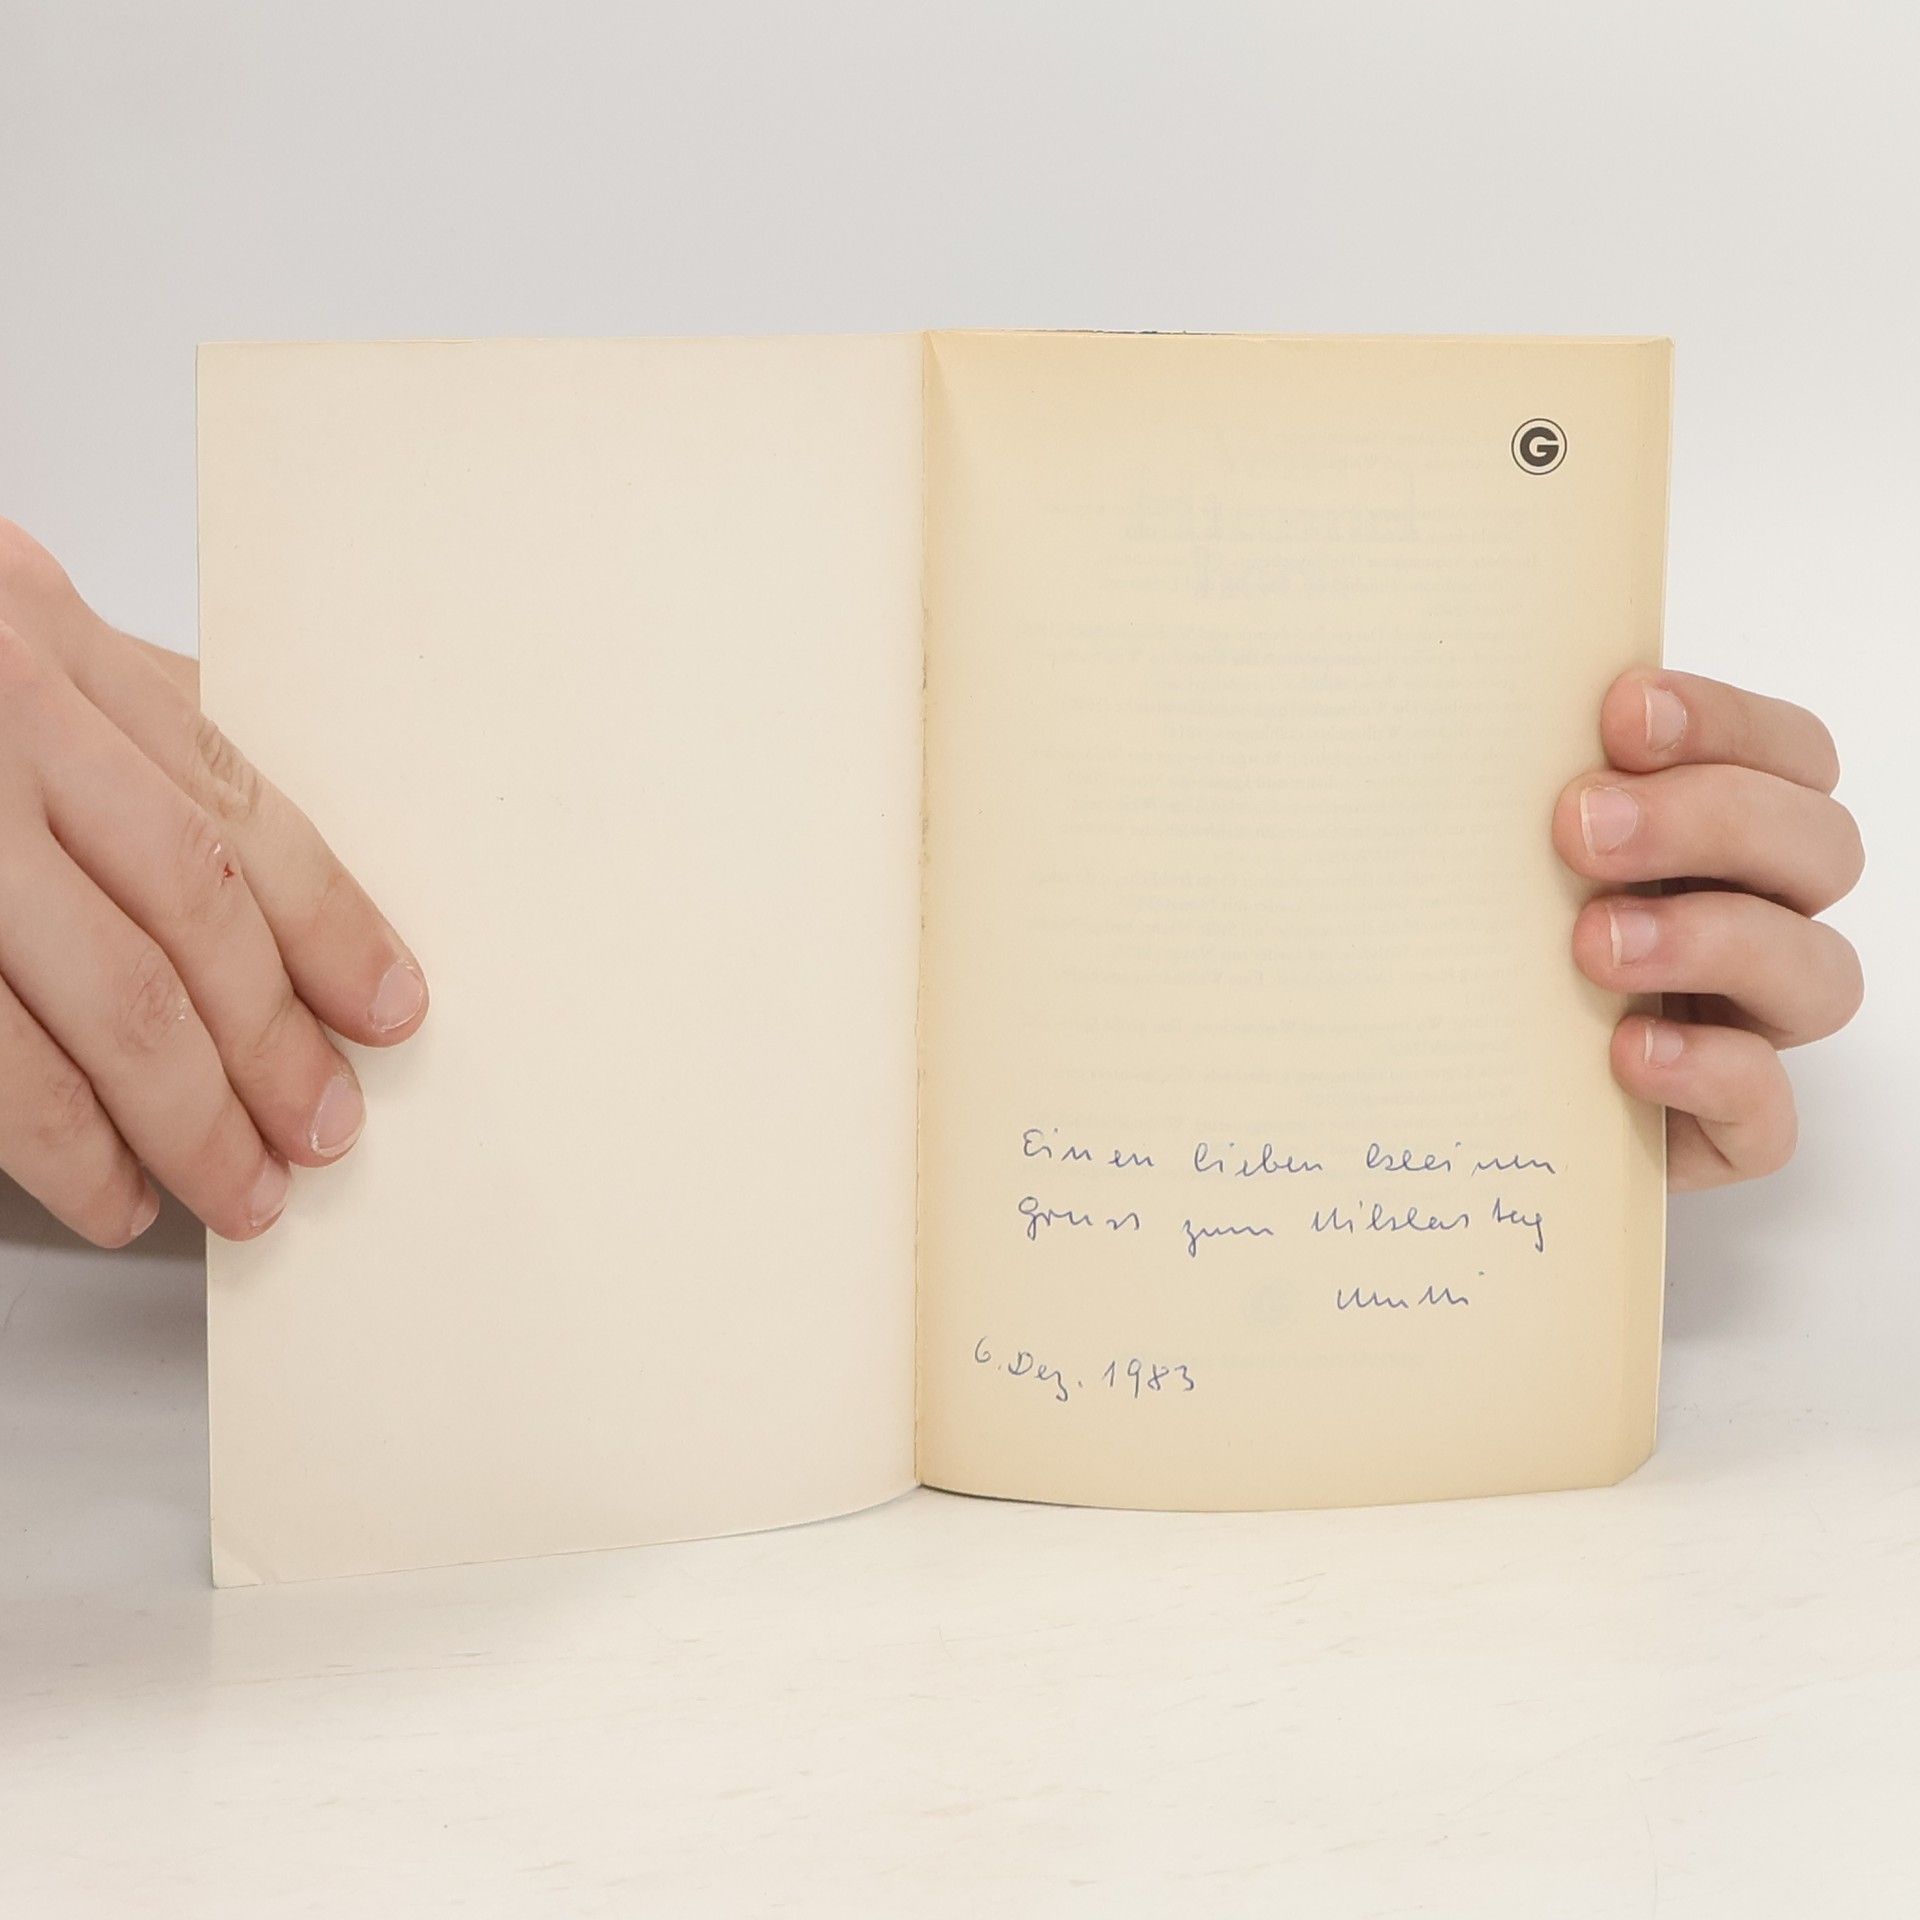 G
Einen lieben kleinen
Gruss zum Nikolaustag
Mutti
6. Dez. 1983